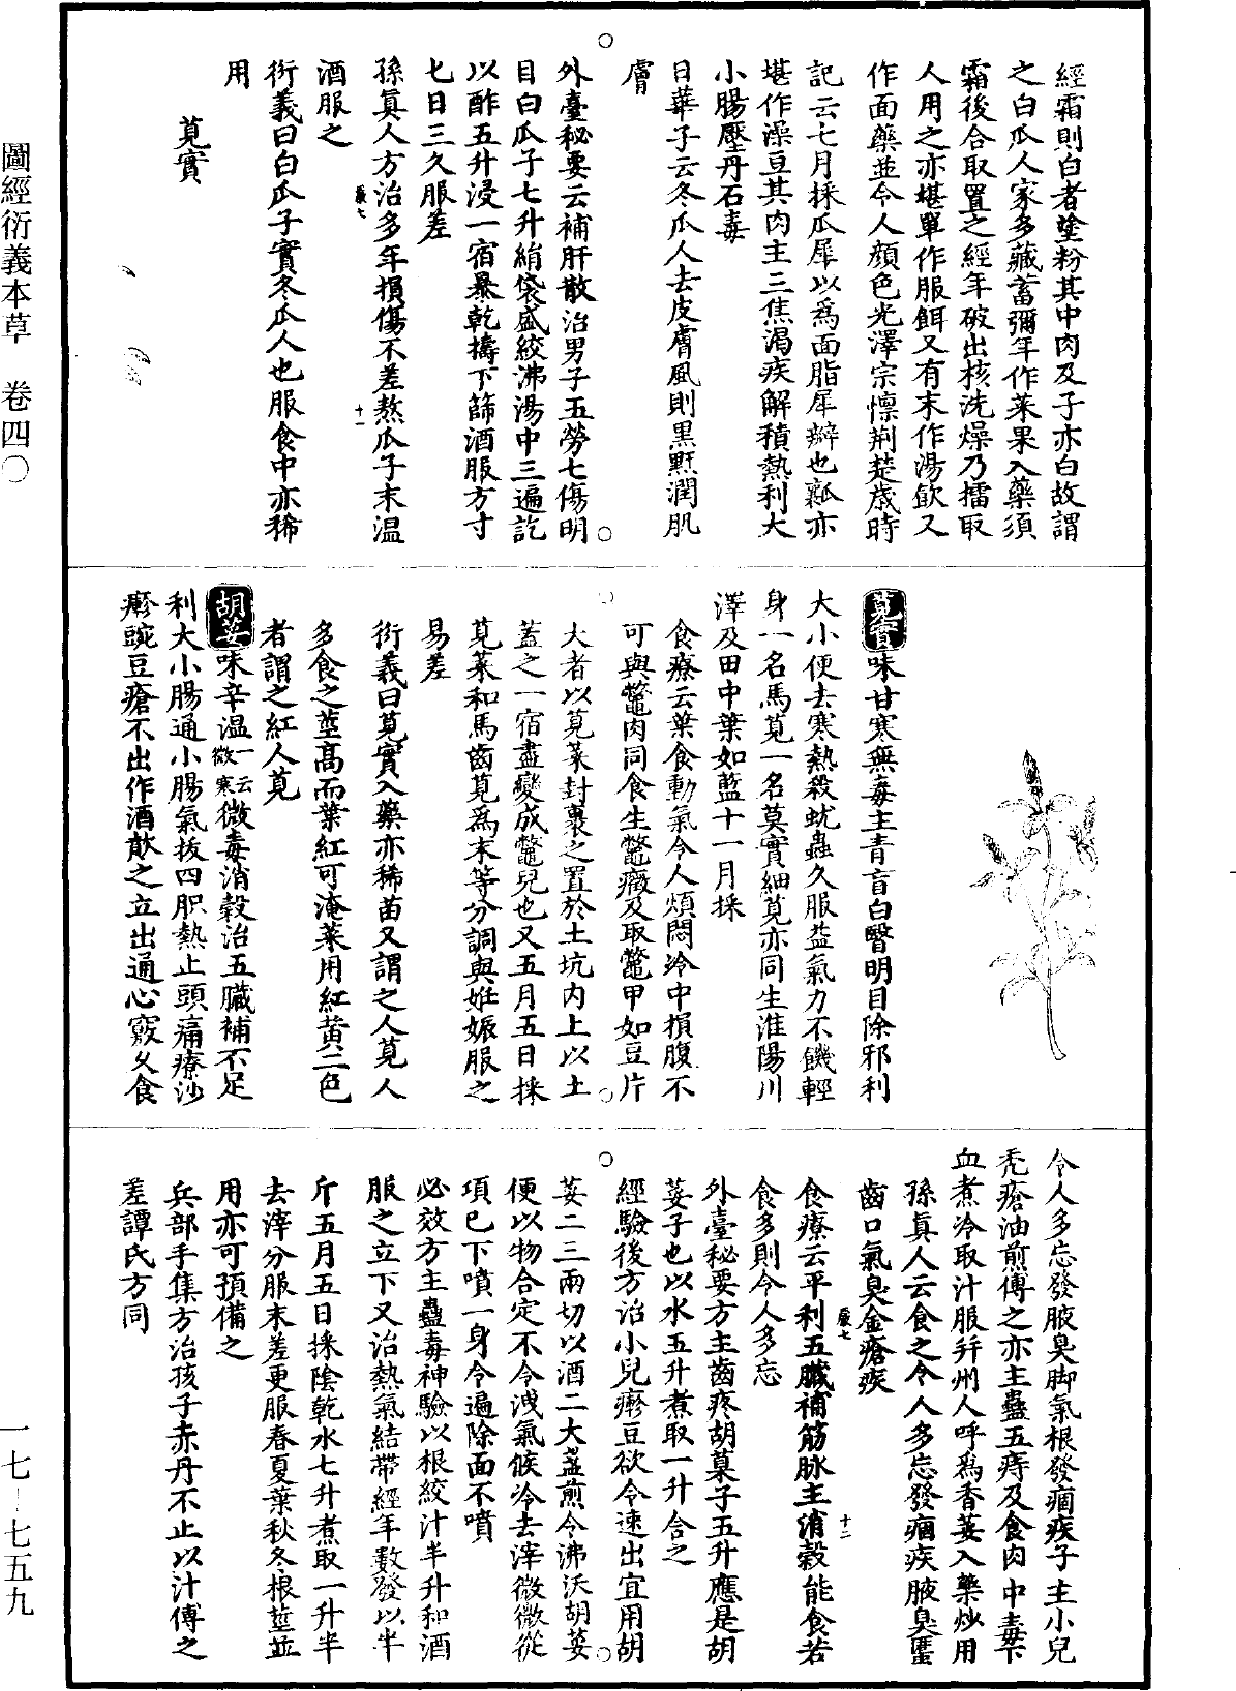 經霜則白者塗粉其中肉及子亦白故謂
之白瓜人家多藏蓄彌年作菜果入藥須
霜後合取置之經年破出核洗燥乃擂取
人用之亦堪單作服餌又有末作湯飲又
作面藥並令人顔色光澤宗懍荆楚歲時
記云七月採瓜犀以爲面脂犀瓣也瓤亦
堪作澡豆其肉主三焦渴疾解積熱利大
小腸壓丹石毒
日華子云冬瓜人去皮膚風則黑䵟潤肌
膚
外臺秘要云補肝散治男子五勞七傷明
目白瓜子七升絹袋盛絞沸湯中三遍訖
以酢五升浸一宿暴乾擣下篩酒服方寸
匕日三久服差
孫真人方治多年損傷不差熬瓜子末温
酒服之
衍義曰白瓜子實冬瓜人也服食中亦稀
用
莧實
莧實味甘寒無毒主青盲白瞖明目除邪利
大小便去寒熱殺蚘蟲久服益氣力不饑輕
身一名馬莧一名莫實細莧亦同生淮陽川
澤及田中葉如藍十一月採
食療云葉食動氣令人煩悶冷中損腹不
可與鼈肉同食生鼈癥及取鼈甲如豆片
大者以莧菜封裹之置於土坑内上以土
蓋之一宿盡變成鼈兒也又五月五日採
莧菜和馬齒莧爲末等分調與姙娠服之
易差
衍義曰莧實入藥亦稀苗又謂之人莧人
多食之莖高而葉紅可淹菜用紅黄二色
者謂之紅人莧
胡荽味辛温一云微寒微毒消穀治五臟補不足
利大小腸通小腸氣拔四肢熱止頭痛療沙
㾦豌豆瘡不出作酒歕之立出通心竅久食
令人多忘發腋臭脚氣根發痼疾子主小兒
秃瘡油煎傅之亦主蠱五痔及食肉中毒下
血煮冷取汁服并州人呼爲香荽入藥炒用
孫真人云食之令人多忘發痼疾腋臭䘌
齒口氣臭金瘡疾
食療云平利五臟補筋脉主消穀能食若
食多則令人多忘
外臺秘要方主齒疼胡菓子五升應是胡
荽子也以水五升煮取一升合之
經驗後方治小兒㾦豆欲令速出宜用胡
荽二三兩切以酒二大盞煎令沸沃胡荽
便以物合定不令洩氣候冷去滓微微從
項已下噴一身令遍除面不噴
必效方主蠱毒神驗以根絞汁半升和酒
服之立下又治熱氣結帶經年數發以半
斤五月五日採陰乾水七升煮取一升半
去滓分服未差更服春夏葉秋冬根莖並
用亦可預備之
兵部手集方治孩子赤丹不止以汁傅之
差譚氏方同
圖經衍義本草　卷四〇
一七—七五九